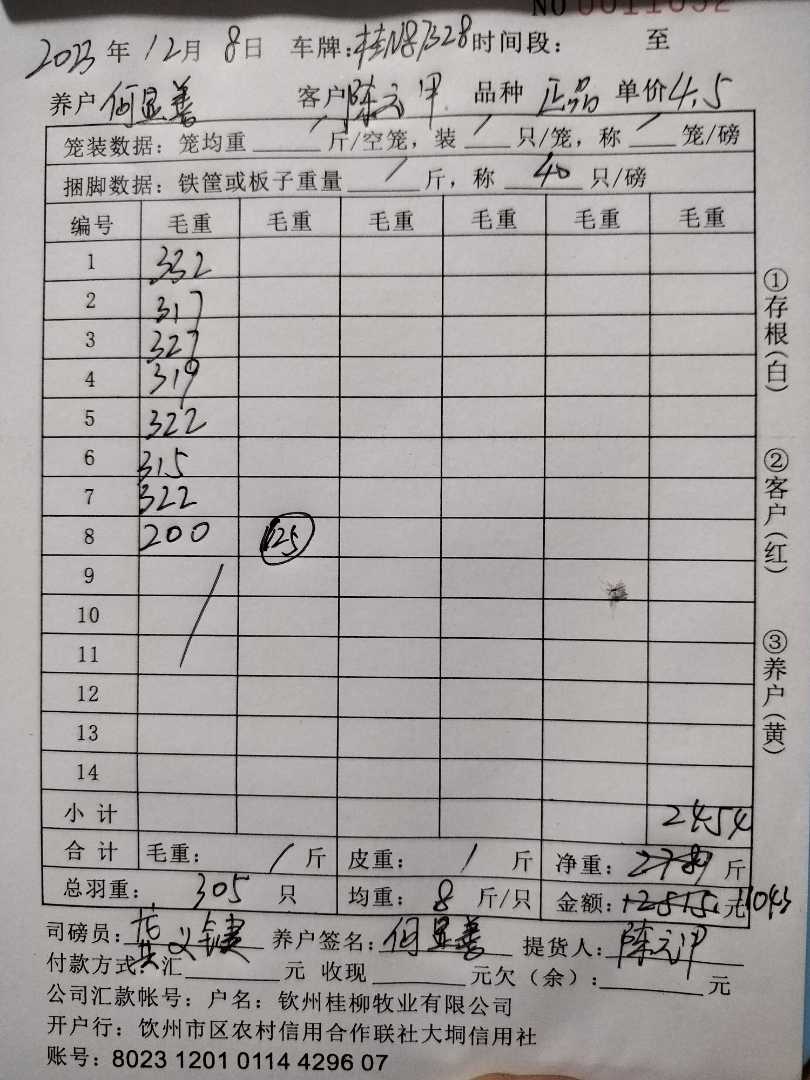 NO 0011052
2023 年 12 月 8 日 车牌:桂N87B28 时间段: 至
养户 何显善 客户 陈元甲 品种 正品 单价 4.5
笼装数据：笼均重 / 斤/空笼，装 / 只/笼，称 / 笼/磅
捆脚数据：铁筐或板子重量 / 斤，称 40 只/磅
编号 毛重 毛重 毛重 毛重 毛重 毛重
1 332
2 317
3 327
4 319
5 322
6 315
7 322
8 200 25
9
10
11
12
13
14
小计 2454
合计 毛重： / 斤 皮重： / 斤 净重： 斤
总羽重： 305 只 均重： 8 斤/只 金额： 元 11043
司磅员： 养户签名：何显善 提货人：陈元甲
付款方式：汇 元 收现 元欠（余）： 元
公司汇款帐号：户名：钦州桂柳牧业有限公司
开户行：饮州市区农村信用合作联社大垌信用社
账号：8023 1201 0114 4296 07
①存根(白)
②客户(红)
③养户(黄)